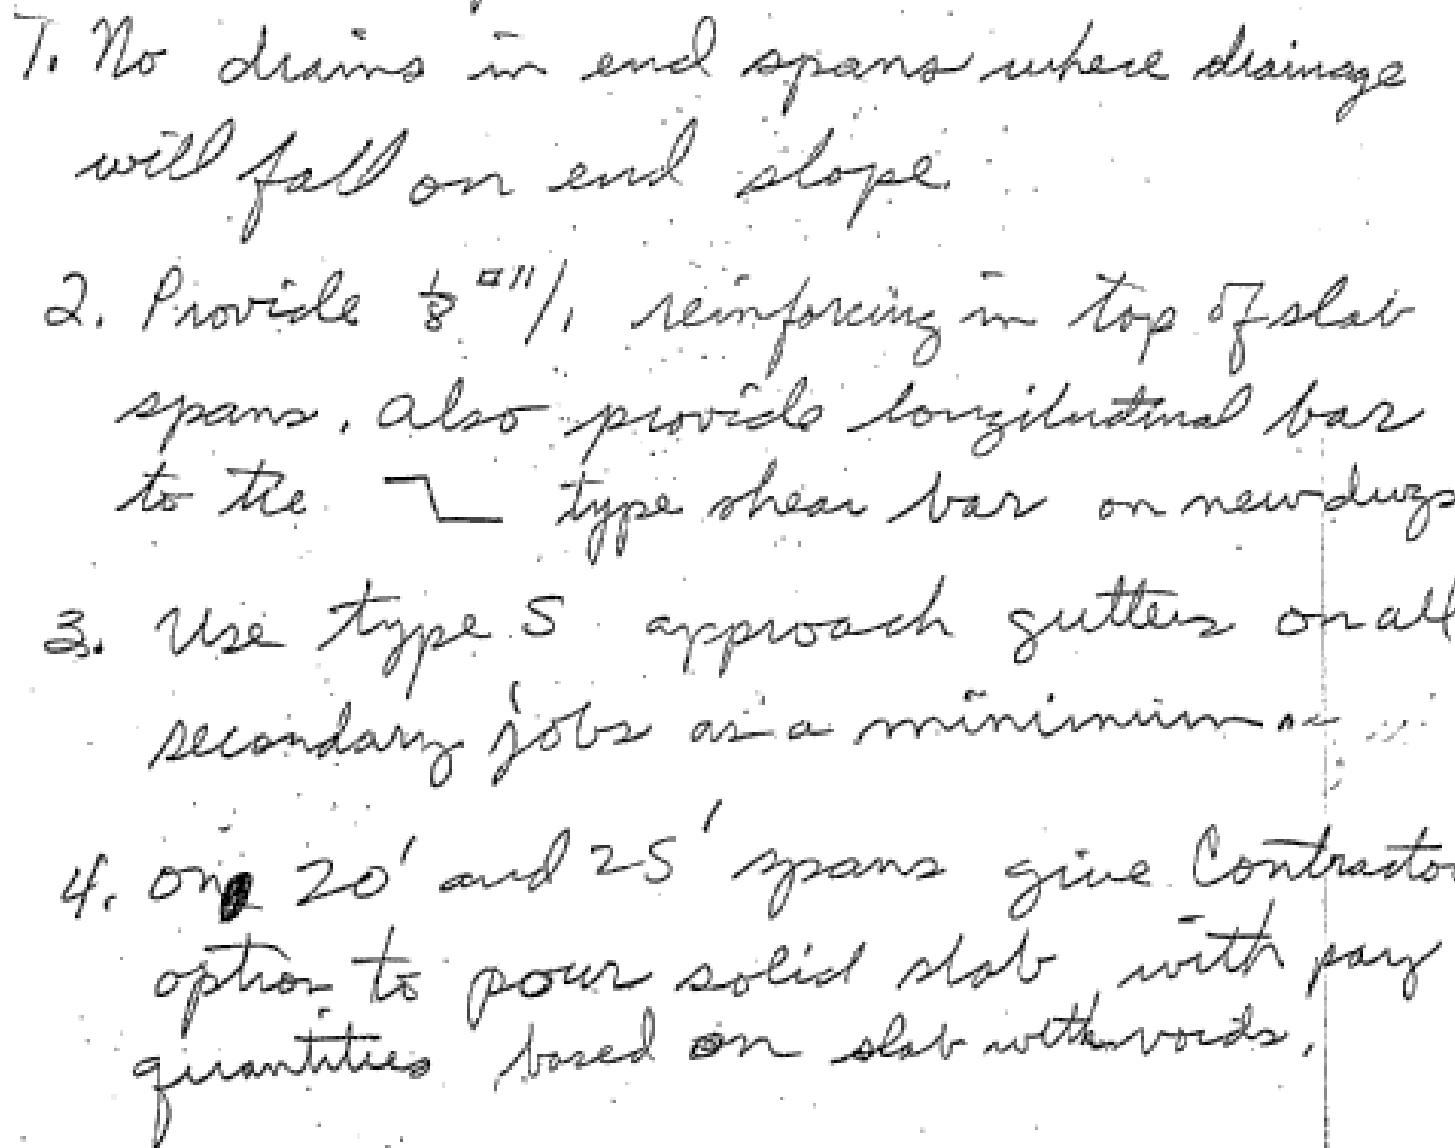 1. No drains in end spans where drainage
will fall on end slope.
2. Provide 1/8 □"/, reinforcing in top of slab
spans. Also provide longitudinal bar
to tie type shear bar on new dwgs
3. Use type S approach gutters on all
secondary jobs as a minimum
4. On 20' and 25' spans give Contractor
option to pour solid slab with pay
quantities based on slab with voids.